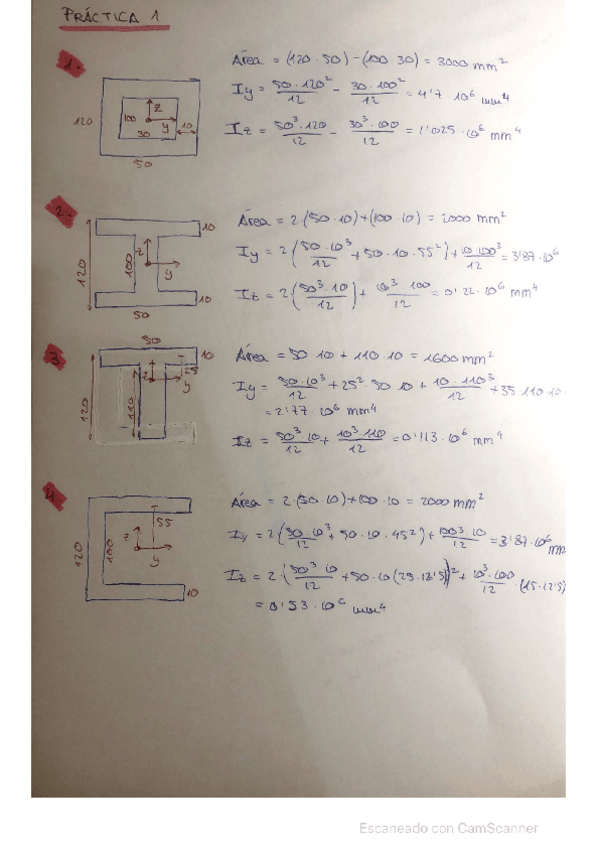 PRÁCTICA 1
1.-
Área = (120·50) - (100·30) = 3000 mm²
Iy = 50·120²/12 - 30·100²/12 = 4'7·10⁶ mm⁴
Iz = 50³·120/12 - 30³·100/12 = 1'025·10⁶ mm⁴
120
100
30
z
y
10
50
2.-
Área = 2·(50·10)+(100·10) = 2000 mm²
Iy = 2(50·10³/12 + 50·10·55²) + 10·100³/12 = 3'87·10⁶
Iz = 2·(50³·10/12) + 10³·100/12 = 0'22·10⁶ mm⁴
10
120
100
z
y
10
50
3
Área = 50·10 + 110·10 = 1600 mm²
Iy = 50·10³/12 + 25²·50·10 + 10·110³/12 + 35·110·10
= 2'77·10⁶ mm⁴
Iz = 50³·10/12 + 10³·110/12 = 0'113·10⁶ mm⁴
50
10
120
110
z
y
4.
Área = 2·(50·10)+100·10 = 2000 mm²
Iy = 2(50·10³/12 + 50·10·45²) + 100³·10/12 = 3'87·10⁶ mm
Iz = 2·(50³·10/12 + 50·10(25-12'5))² + 10³·100/12·(15-12'5)
= 0'53·10⁶ mm⁴
120
100
55
z
y
10
Escaneado con CamScanner